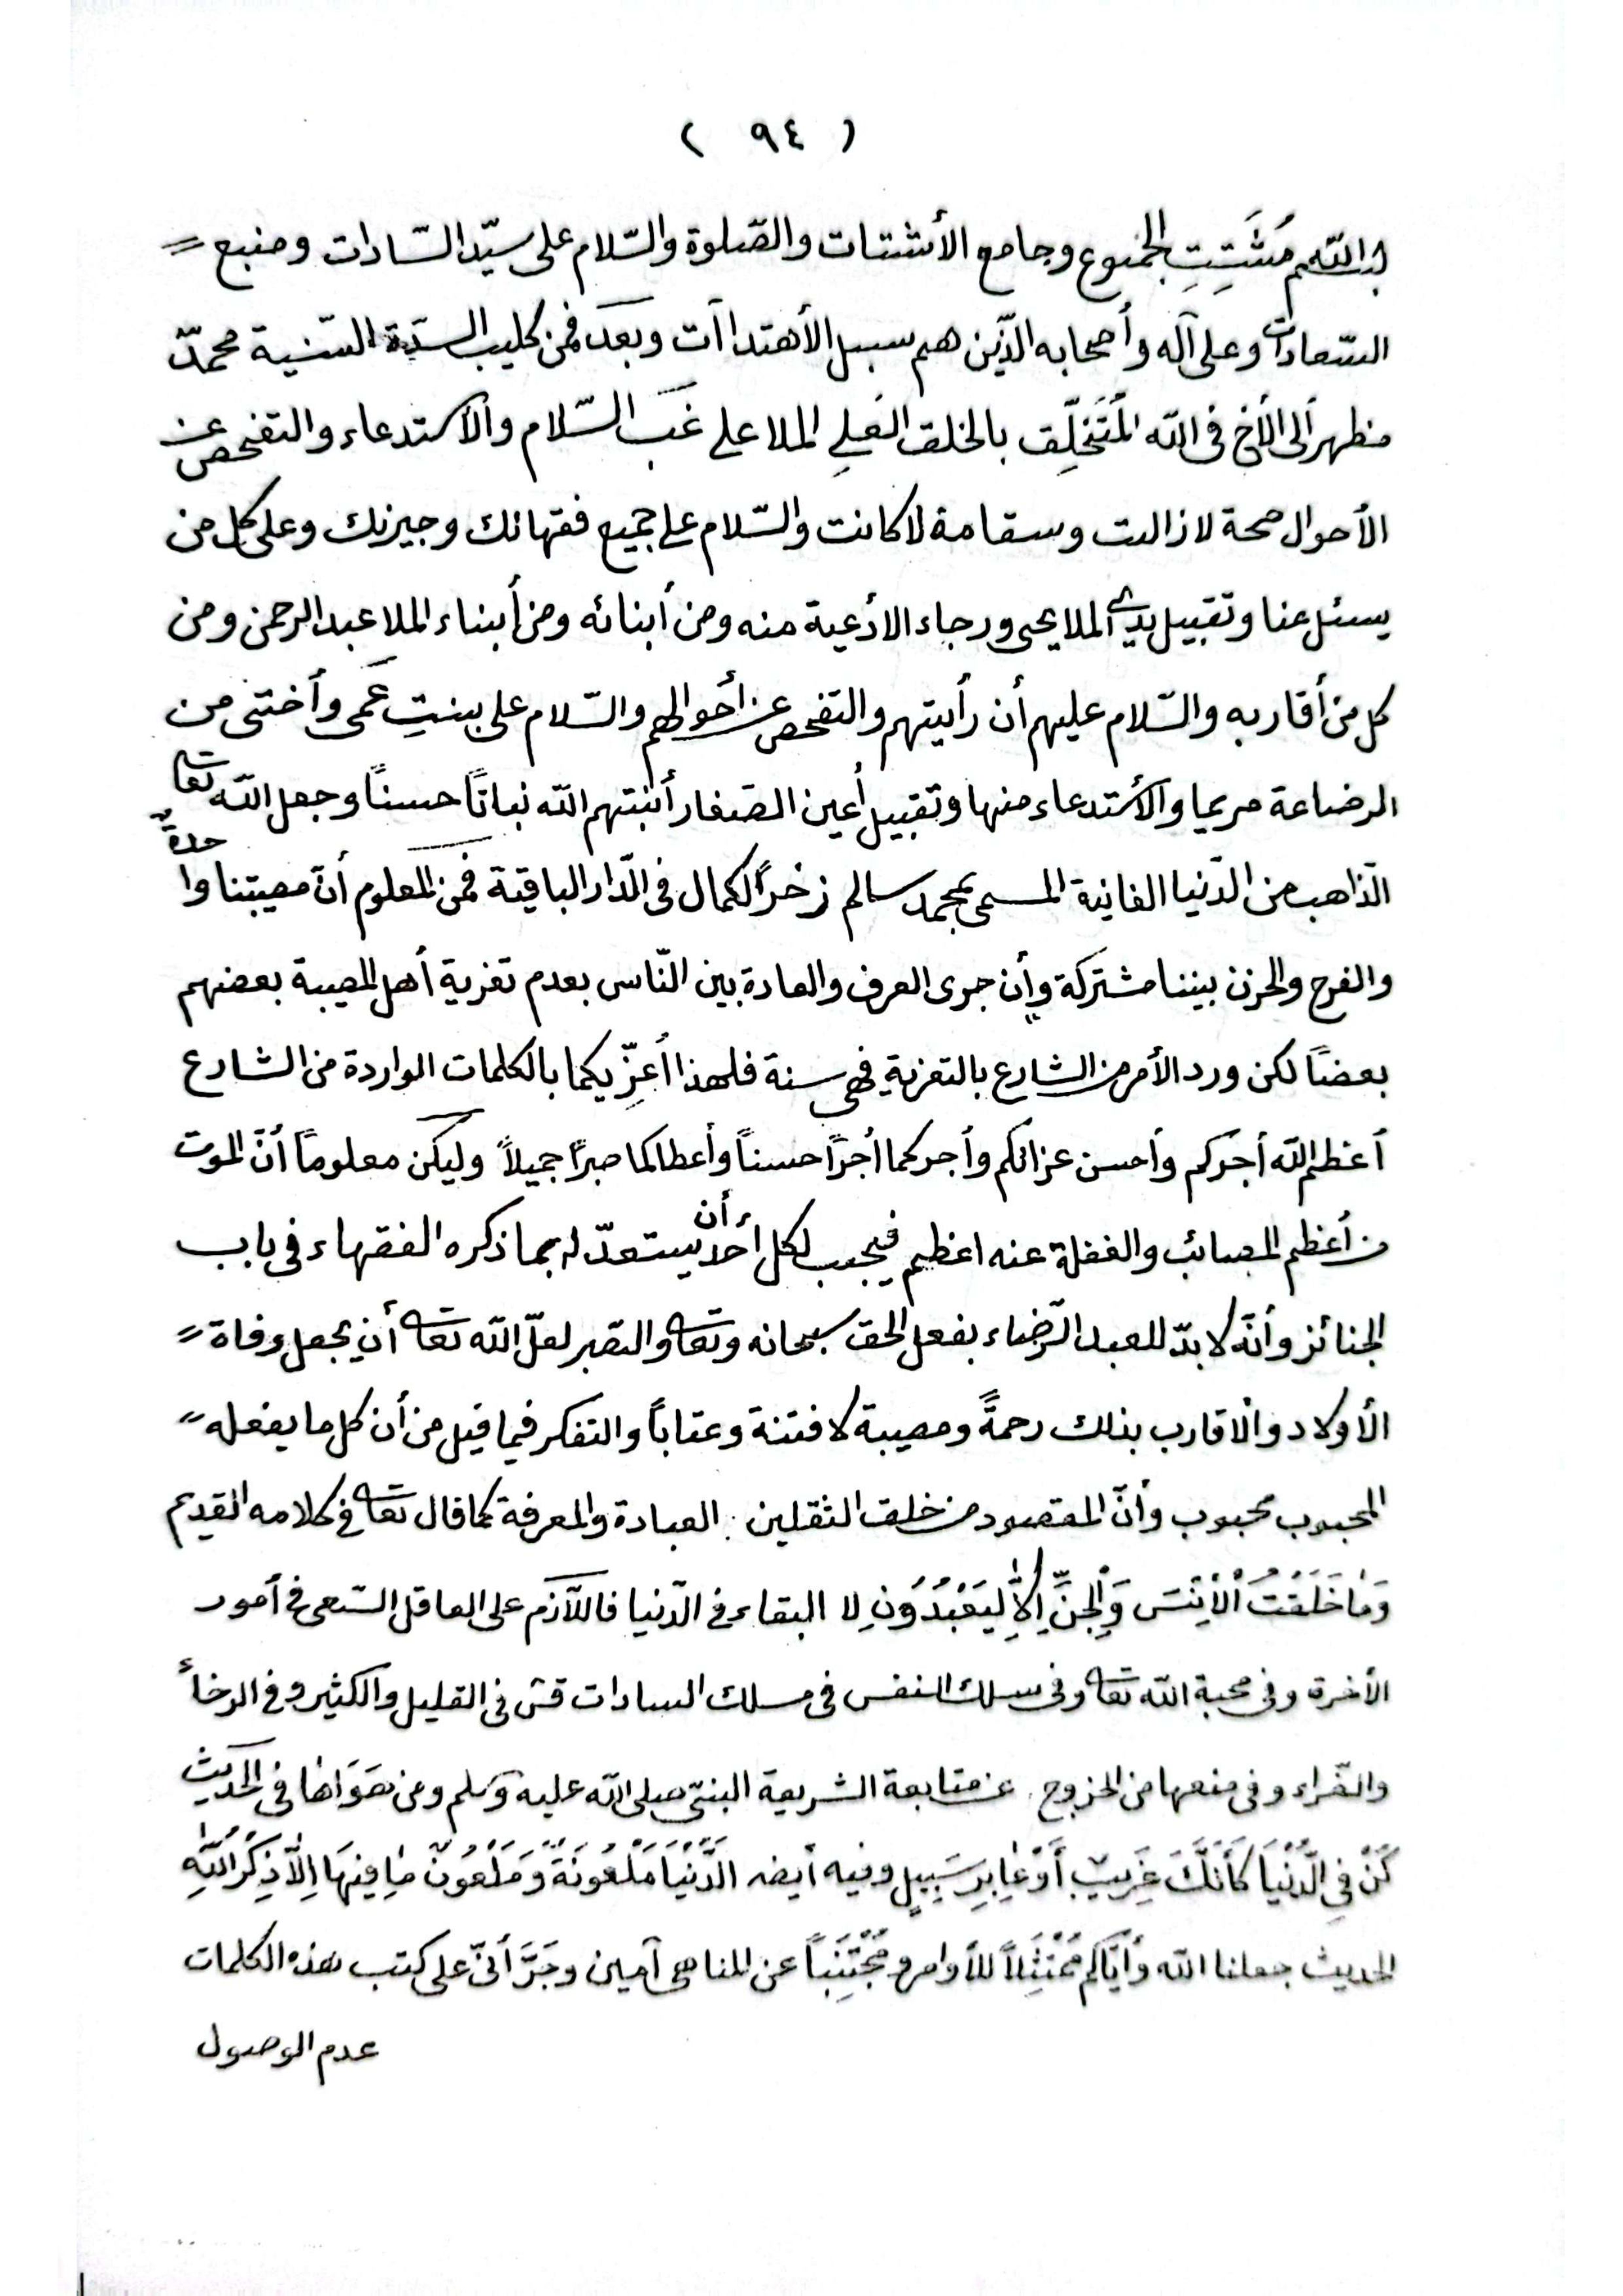 ( ٩٤ )
باللّٰهم مُشَتِتِ الجموع وجامع الأشتات والصّلوة والسّلام على سيّد السّادات ومنبع =
السّعادات وعلى آله وأصحابه الذّين هم سبيل الأهتداآت وبعد فمن كليب السدّة السّنية محمدّ
مظهر ألى الأخ فى اللّه المُتَخَلِّق بالخلق العَلِى الملا على غَبَ السّلام والأستدعاء والتفحص عن
الأحوال صحة لا زالت وسقامة لا كانت والسّلام على جميع فقهائك وجيرنك وعلى كل من
يسئل عنا وتقبيل يدى ألملا يحى ورجاء الادعية منه ومن أبنائه ومن أبناء الملا عبد الرحمن ومن
كل من أقاربه والسّلام عليهم أن رأيتهم والتفحص عن أحوالهم والسّلام على بينتِ عَمى وأختى من
الرضاعة مريما والأستدعاء منها وتقبيل أعين الصّغار أنبتهم اللّه نباتاً حسناً وجعل اللّه تعا
الذّاهب من الدّنيا الفانية المسمى بمحمد سالم زخراً لكما ل فى الدّار الباقية فمن المعلوم أنّ مصيبتنا واحدةٌ
والفرح والحزن بيننا مشتركة وإن جرى العرف والعادة بين النّاس بعدم تعزية أهل المصيبة بعضهم
بعضاً لكن ورد الأمر من الشارع بالتعزية فهى سنة فلهذا أُعزِّيكما بالكلمات الواردة من الشارع
أعظم اللّه أجركم وأحسن عزائكم وأجركما أجراً حسناً وأعطاكما صبراً جميلاً وليكن معلوماً أنّ الموت
من أعظم المصائب والغفلة عنه اعظم فيجب لكل أحد أن يستعدّ له بما ذكره الفقهاء فى باب
الجنائز وأنّه لا بدّ للعبد الرّضاء بفعل الحق سبحانه وتعا والصّبر لعلّ اللّه تعا أن يجعل وفاة =
الأولاد والاقارب بذلك رحمةً ومصيبة لا فتنة وعتاباً والتفكر فيما قيل من أن كل ما يفعله =
المحبوب محبوب وأنّ المقصود من خلق الثقلين العبادة والمعرفة كما قال تعا فى كلامه القديم
وَمَا خَلَقْتُ الْأِنْسَ وَالْجِنَّ إِلاَّ لِيَعْبُدُونِ لا البقاء فى الدّنيا فاللّازم على العاقل السّعى فى أمور
الأخرة وفى محبة اللّه تعا وفى سلك النفس فى مسلك السادات قس فى القليل والكثير وفى الرخاء
والضّراء وفى منعها من الخروج عن متابعة الشريعة النبىّ صلى اللّه عليه وسلم ومن هَوَاها فى الحديث
كُنْ فِى الدُّنْيَا كَأَنَّكَ غَرِيبٌ أَوْ عَابِرِ سَبِيلٍ وفيه أيضه الدُّنْيَا مَلْعُونَةٌ وَمَلْعُونٌ مَا فِيهَا اِلاَّ ذِكْرَ اللّٰهِ
الحديث جعلنا اللّه وأيّاكم مُمْتَثِلاً للأوامر ومُجْتَنِباً عن المناهى آمين وجَرَّ أنّى على كتب هذه الكلمات
عدم الوصول